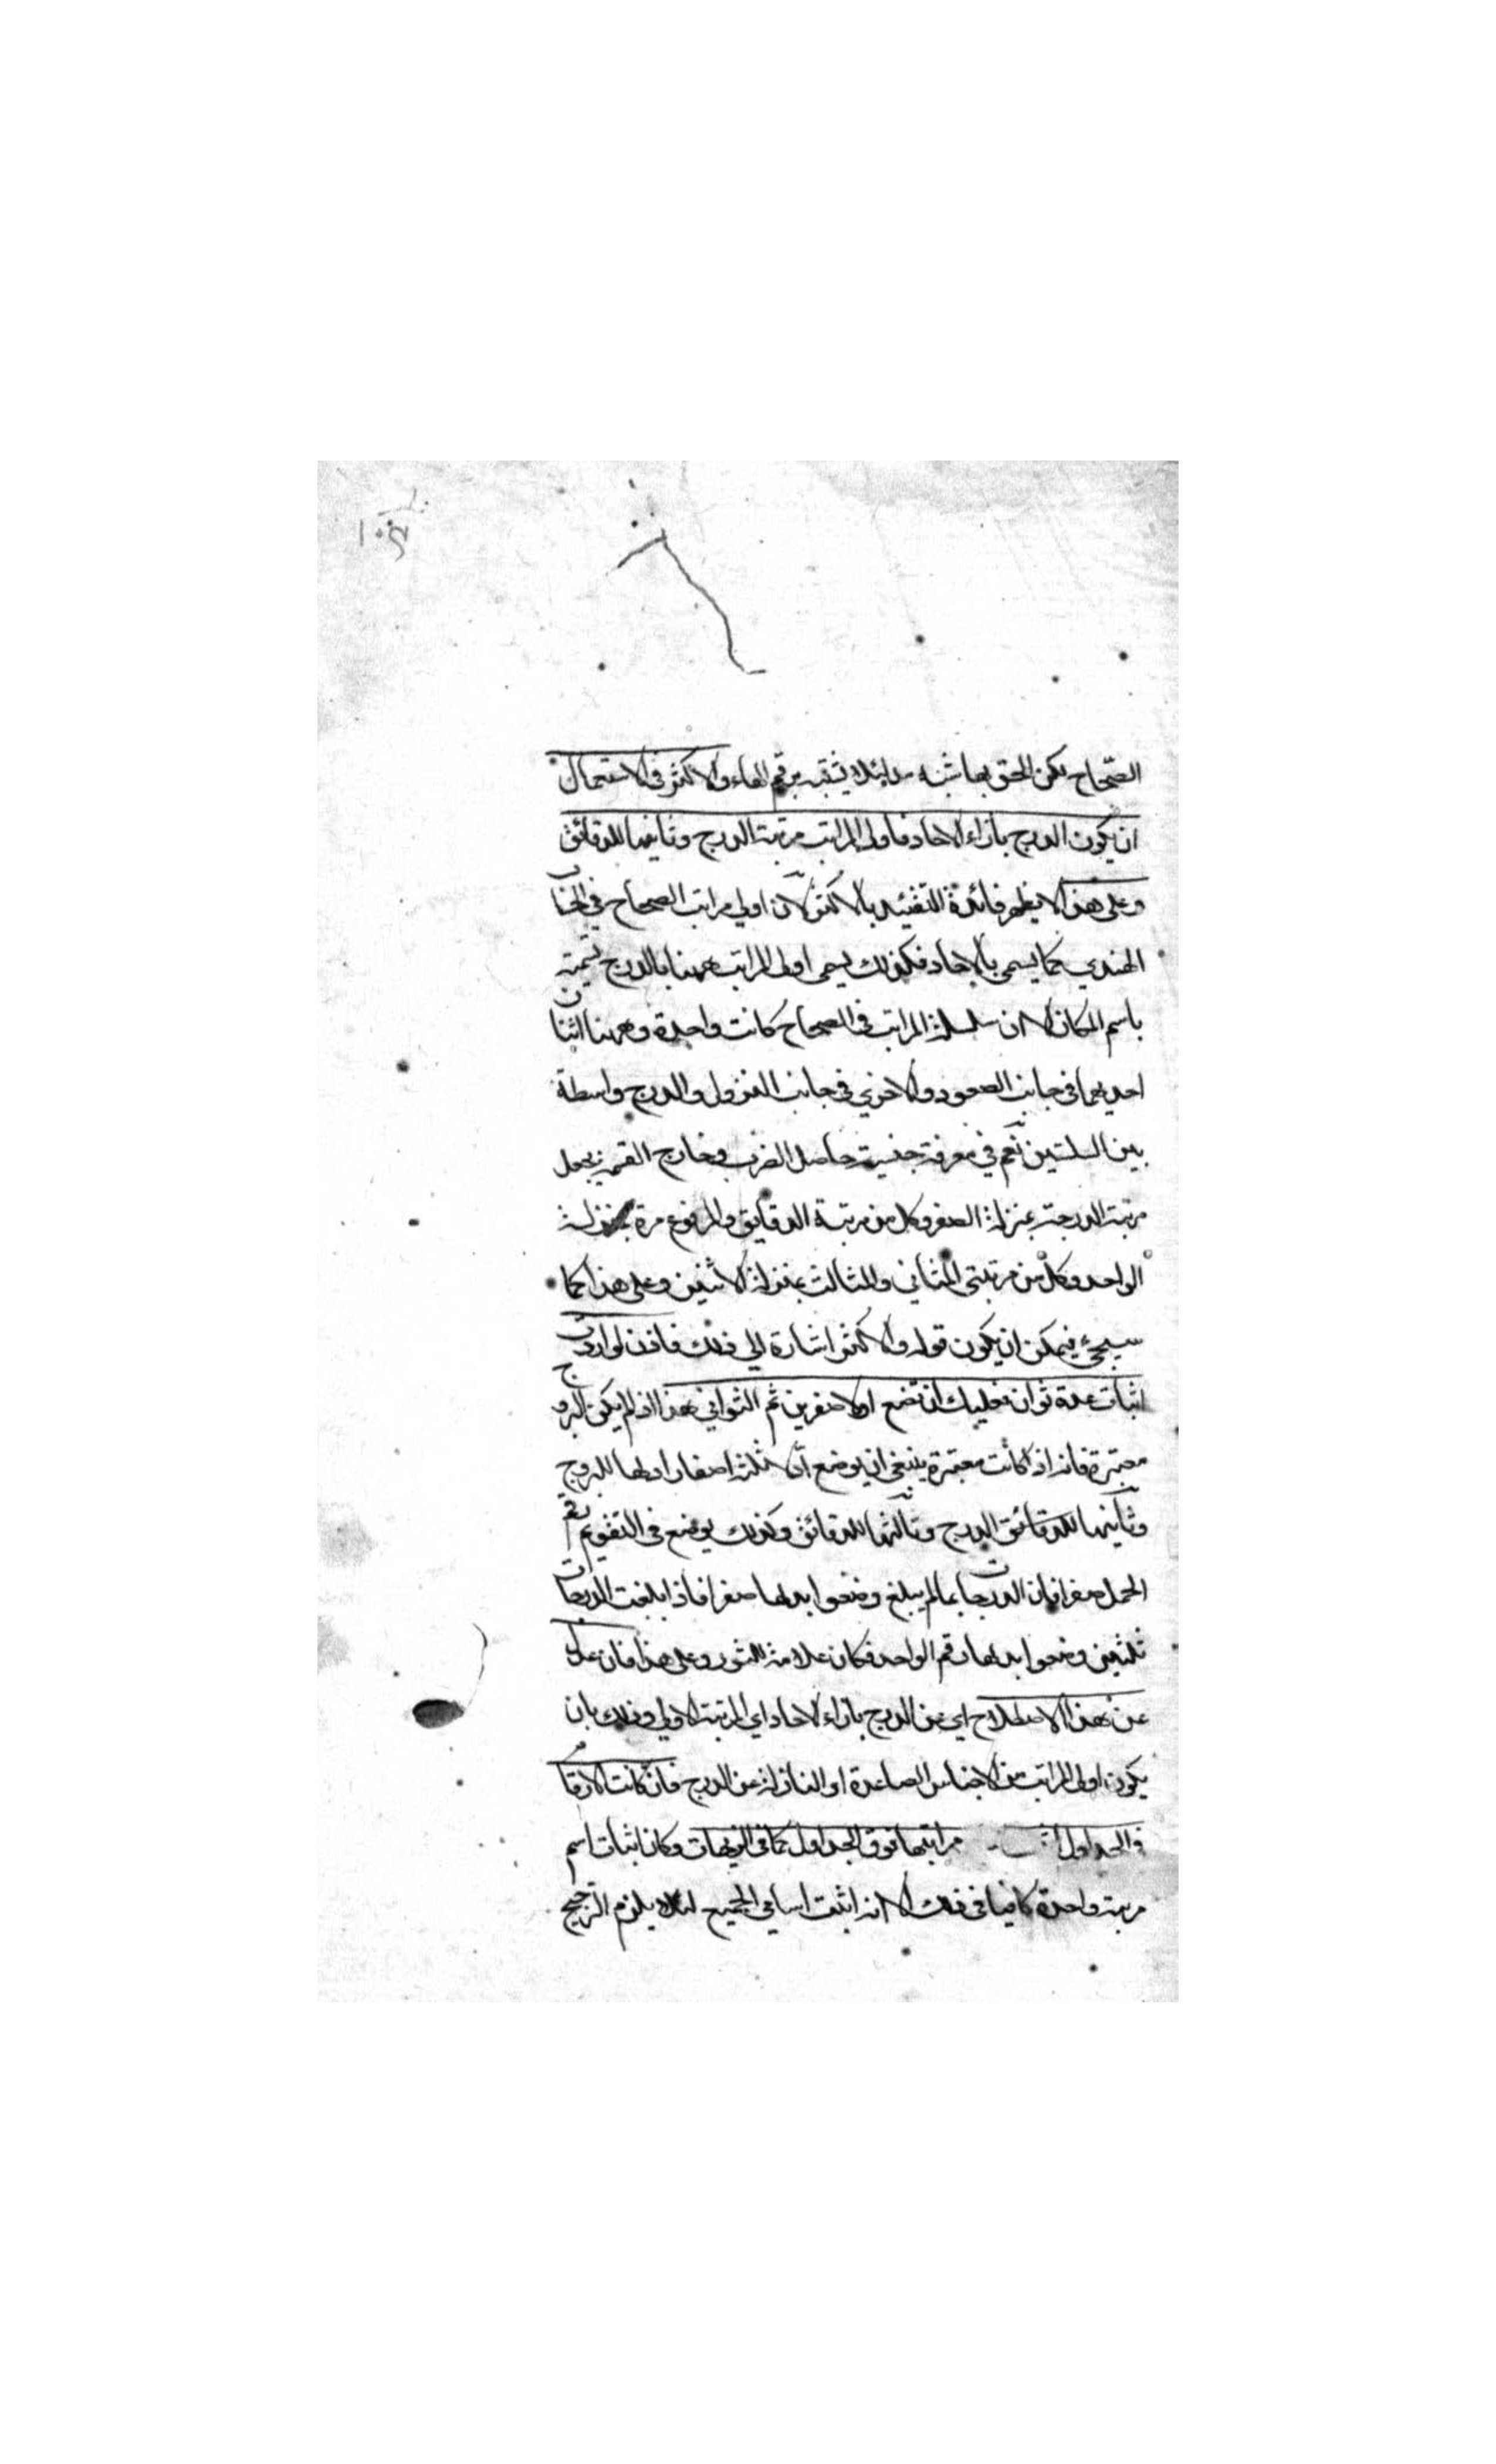 الصحاح لكن الحق بها شبه مد لئلا يشتبه برقم الهاء والاكثر في الاستعمال
ان يكون الدرج بازاء الاحاد فاولى المراتب مرتبة الدرج وثانيها للدقائق
وعلى هذا لا يظهر فائدة التقييد بالاكثر لان اولي مراتب الصحاح في الحساب
الهندي كما يسمى بالاحاد فكذلك يسمى اولى المراتب ههنا بالدرج تسمية
باسم المكان الا ان سلسلة المراتب في الصحاح كانت واحدة وههنا اثنتان
احديهما في جانب الصعود والاخري في جانب النزول والدرج واسطة
بين السلسلتين نعم في معرفة جنسية حاصل الضرب وخارج القسمة يجعل
مرتبة الدرجة بمنزلة الصفر وكل من مرتبة الدقايق والمرفوع مرة بمنزلة
الواحد وكل من مرتبتي المثاني والثالث بمنزلة الاثنين وعلى هذا كما
سيجيء فيمكن ان يكون قوله والاكثر اشارة الي ذلك فاذن لو اردت
اثبات عدة ثوان فعليك ان تضع اولا صفرين ثم الثواني هذا اذا لم يكن البروج
معتبرة فانه اذا كانت معتبرة ينبغي ان يوضع اولا ثلثة اصفار اولها للبروج
وثانيها للدقائق الدرج وثالثها للدقائق وكذلك يوضع في التقويم رقم
الحمل صفرا فان الدرجات ما لم يبلغ وضعوا بدلها صفرا فاذا بلغت الدرجات
ثلثين وضعوا بدلها رقم الواحد فكان علامة للثور وعلى هذا فان عدل
عن هذا الاصطلاح اي عن الدرج بازاء الاحاد اي المرتبة الاولي وذلك بان
يكون اولى المراتب من الاجناس الصاعدة او النازلة عن الدرج فان كانت الارقام
في الجداول مراتبها فوق الجداول كما في الزيجات وكان اثبات اسم
مرتبة واحدة كافيا في ذلك الا انه اثبت اسامي الجميع لئلا يلزم الترجيح